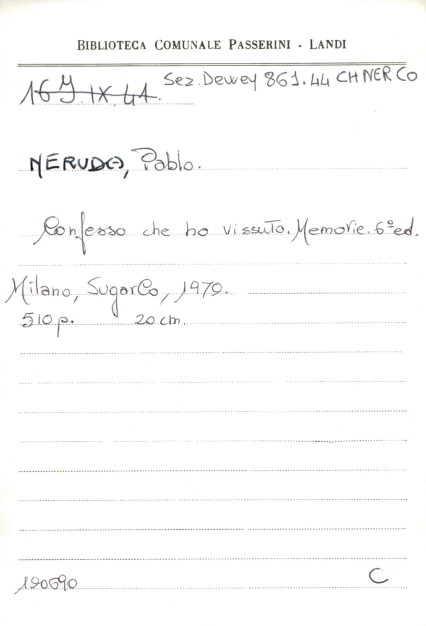 BIBLIOTECA COMUNALE PASSERINI - LANDI
16 Y. IX. 41. Sez. Dewey 861.44 CH NER CO
NERUDA, Pablo.
Confesso che ho vissuto. Memorie. 6ª ed.
Milano, SugarCo, 1979.
510 p. 20 cm.
190690
C